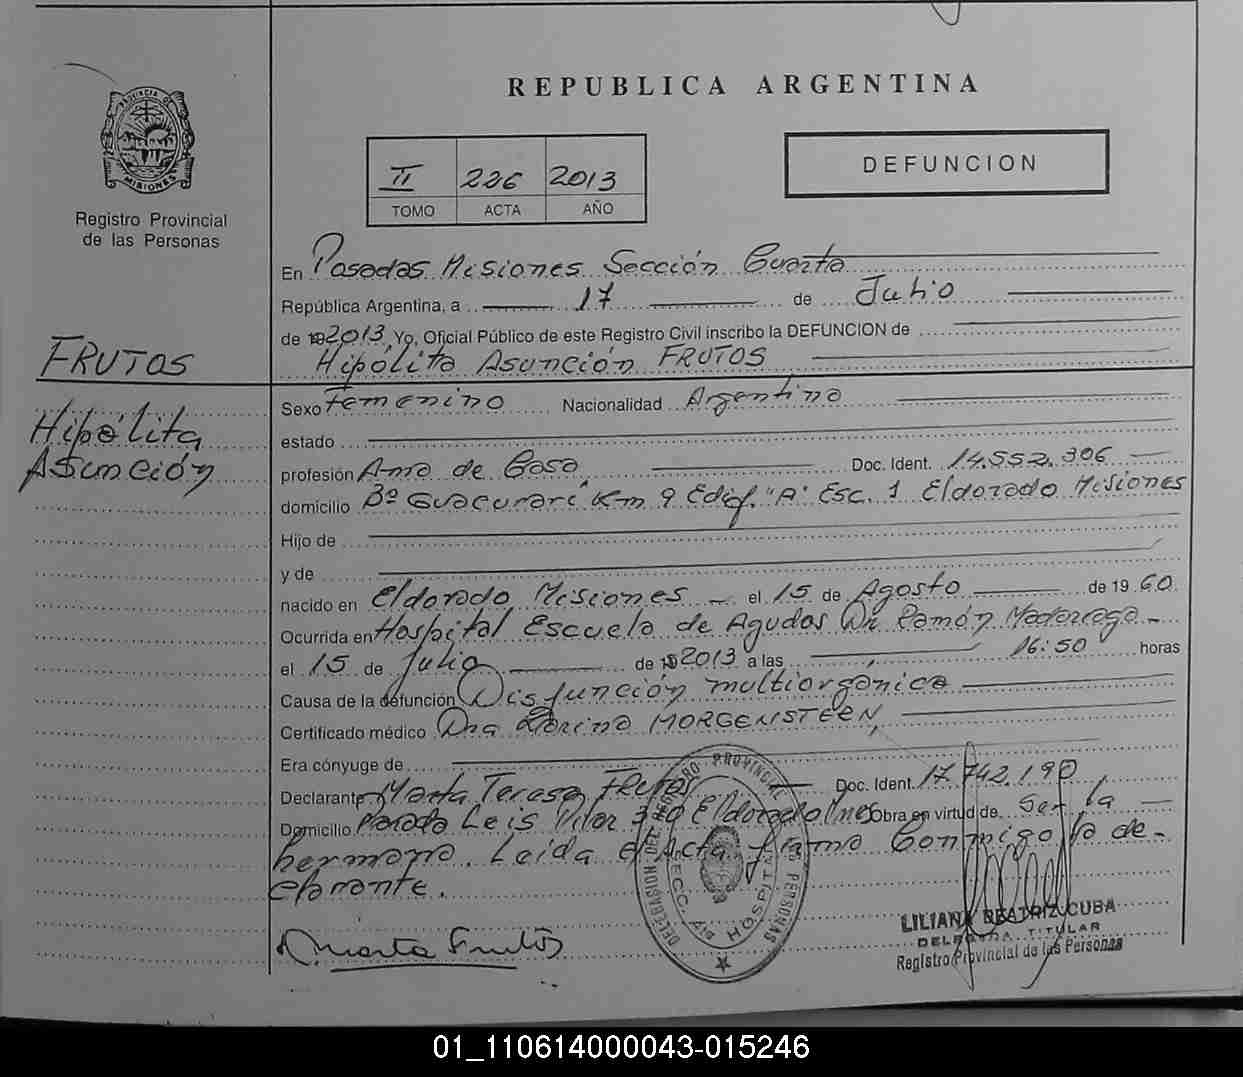 REPUBLICA ARGENTINA
PROVINCIA DE MISIONES
Registro Provincial
de las Personas
II 226 2013
TOMO ACTA AÑO
DEFUNCION
En Posadas Misiones Sección Cuarta
República Argentina, a 17 de Julio
de 2013 Yo, Oficial Público de este Registro Civil inscribo la DEFUNCION de
Hipólita Asunción FRUTOS
FRUTOS
Hipólita
Asunción
Sexo Femenino Nacionalidad Argentina
estado
profesión Ama de Casa Doc. Ident. 14.552.306
domicilio Bº Guacurarí Km 9 Edif. "A" Esc. 1 Eldorado Misiones
Hijo de
y de
nacido en Eldorado Misiones el 15 de Agosto de 1960
Ocurrida en Hospital Escuela de Agudos Dr. Ramón Madariaga
el 15 de Julio de 2013 a las 16:50 horas
Causa de la defunción Disfunción multiorgánica
Certificado médico Dra MORGENSTERN
Era cónyuge de
Declarante Marta Teresa Frutos Doc. Ident. 17.742.190
Domicilio 370 Eldorado Mnes Obra en virtud de Ser la
hermana. Leída el Acta firma Conmigo la de-
clarante.
Marta Frutos
DELEGACION DEL REGISTRO PROVINCIAL DE LAS PERSONAS
SECC. 4ta HOSPITAL
LILIANA BEATRIZ CUBA
DELEGADA TITULAR
Registro Provincial de las Personas
01_110614000043-015246